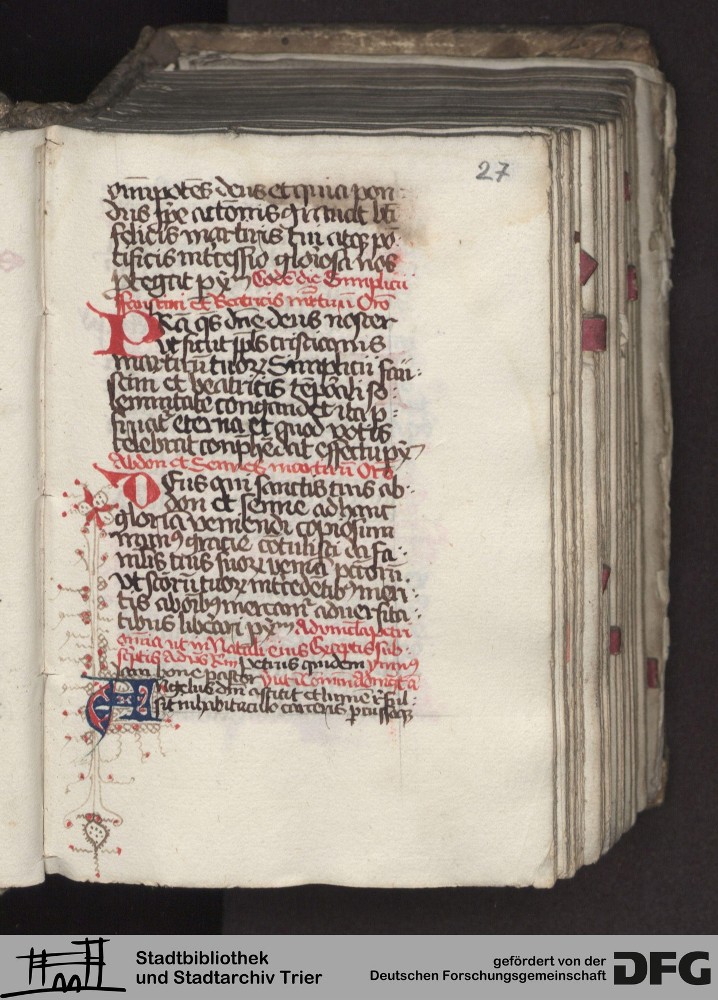 27
om̅ipote̅s deus et quia pon
deris
felicis martiris tui atq̨ po̅
tificis intercessio gloriosa nos
p̱tegat p̱ Eode̅ die Simplicii
faustini et Beatricis m̅rtiru̅ Or̅o
PRe̅a q̅s dn̅e deus noster
vt sicut ppl̅s cristianus
martiru̅ tuoꝝ Simplicii fau
stini et beatricis te̅porali so
lemnitate congaudet ita p̱
fruat̅ eterna et quod votis
celebrat conp̱hendat effectu p̱
Abdon et Sennes martiru̅ Or̅o
DEus qui sanctis tuis ab
don et senne ad hanc
gloriam veniendi copiosum
munꝰ gratie co̅tulisti da fa
mulis tuis suoꝝ venia̅ pc̅toru̅
vt sc̅oru̅ tuoꝝ intercedentibꝫ meri
tis ab oi̅bꝫ mereant̅ aduersita
tibus liberari p̱ Ad vincula petri
omnia ut in Natali eius Exceptis sub
sc̅ptis Petrus quidem ymnꝰ
Iam bone pastor
Angelus dn̅i astitit et lume̅ reful
sit in habitaculo carceris p̱cussoq̨
Stadtbibliothek
und Stadtarchiv Trier
gefördert von der
Deutschen Forschungsgemeinschaft
DFG